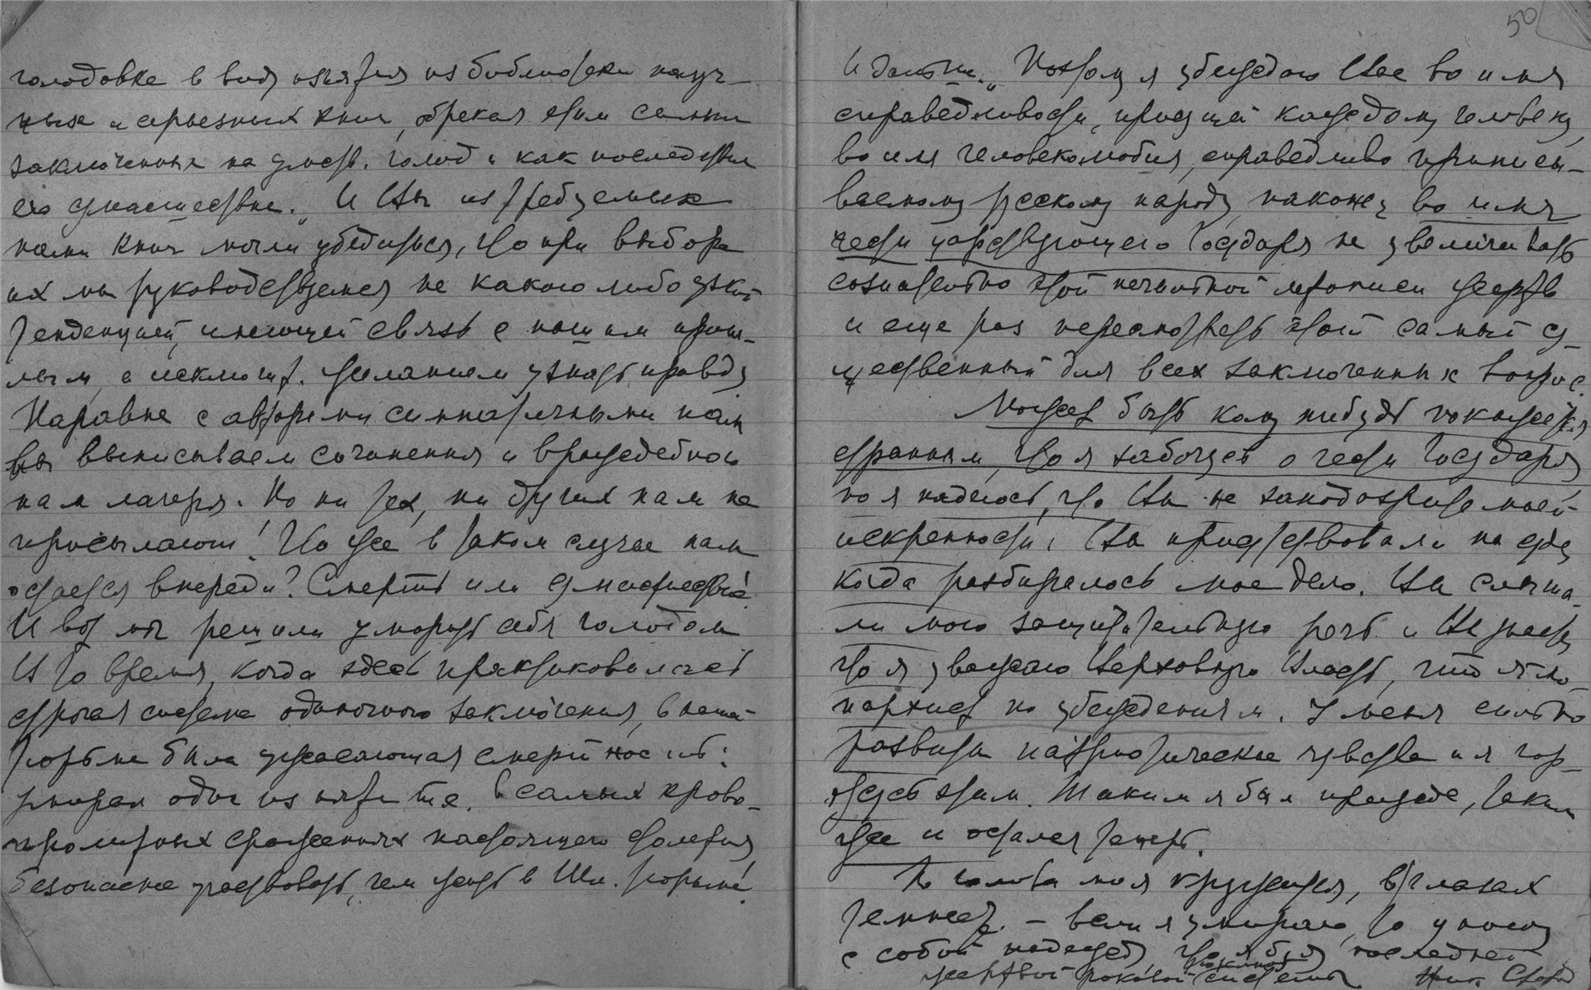 голодовке в виду изъятия из библиотеки науч-
ных и серьезных книг, обрекая этим самым
заключенных на умств. голод и как последствие
его сумасшествие." И Вы из требуемых
нами книг могли убедиться, что при выборе
их мы руководствуемся не какою либо узкой
тенденцией, имеющей связь с нашим прош-
лым, а исключит. желанием узнать правду
Наравне с авторами симпатичными нам
мы выписываем сочинения и враждебного
нам лагеря. Но ни тех, ни других нам не
присылают! Что же в таком случае нам
остается впереди? Смерть или сумасшествие!
И вот мы решили уморить себя голодом
В то время, когда здесь практиковалась
строгая система одиночного заключения, в нашей
тюрьме была ужасающая смертность:
умирал один из пяти
В самых крово-
пролитных сражениях настоящего столетия
безопаснее участвовать, чем жить в Шл. тюрьме!
50
И дальше: "Потому я убеждаю Вас во имя
справедливости, присущей каждому человеку,
во имя человеколюбия, справедливо приписы-
ваемому русскому народу, наконец во имя
чести царствующего Государя не увеличивать
сознательно этой печальной летописи жертв
и еще раз пересмотреть этот самый су-
щественный для всех заключенных вопрос.
Может быть кому нибудь покажется
странным, что я забочусь о чести Государя
но я надеюсь, что Вы не заподозрите моей
искренности. Вы присутствовали на суде
когда разбиралось мое дело. Вы слыша-
ли мою защитительную речь и Вы знаете
что я уважаю Верховную Власть, что я мо-
нархист по убеждениям. У меня сильно
развиты патриотические чувства и я гор-
жусь этим. Таким я был прежде, таким
же и остался теперь.
Но голова моя кружится, в глазах
темнеет. – если я умираю, то уношу
с собой надежду, что я буду последней
жертвой роковой системы